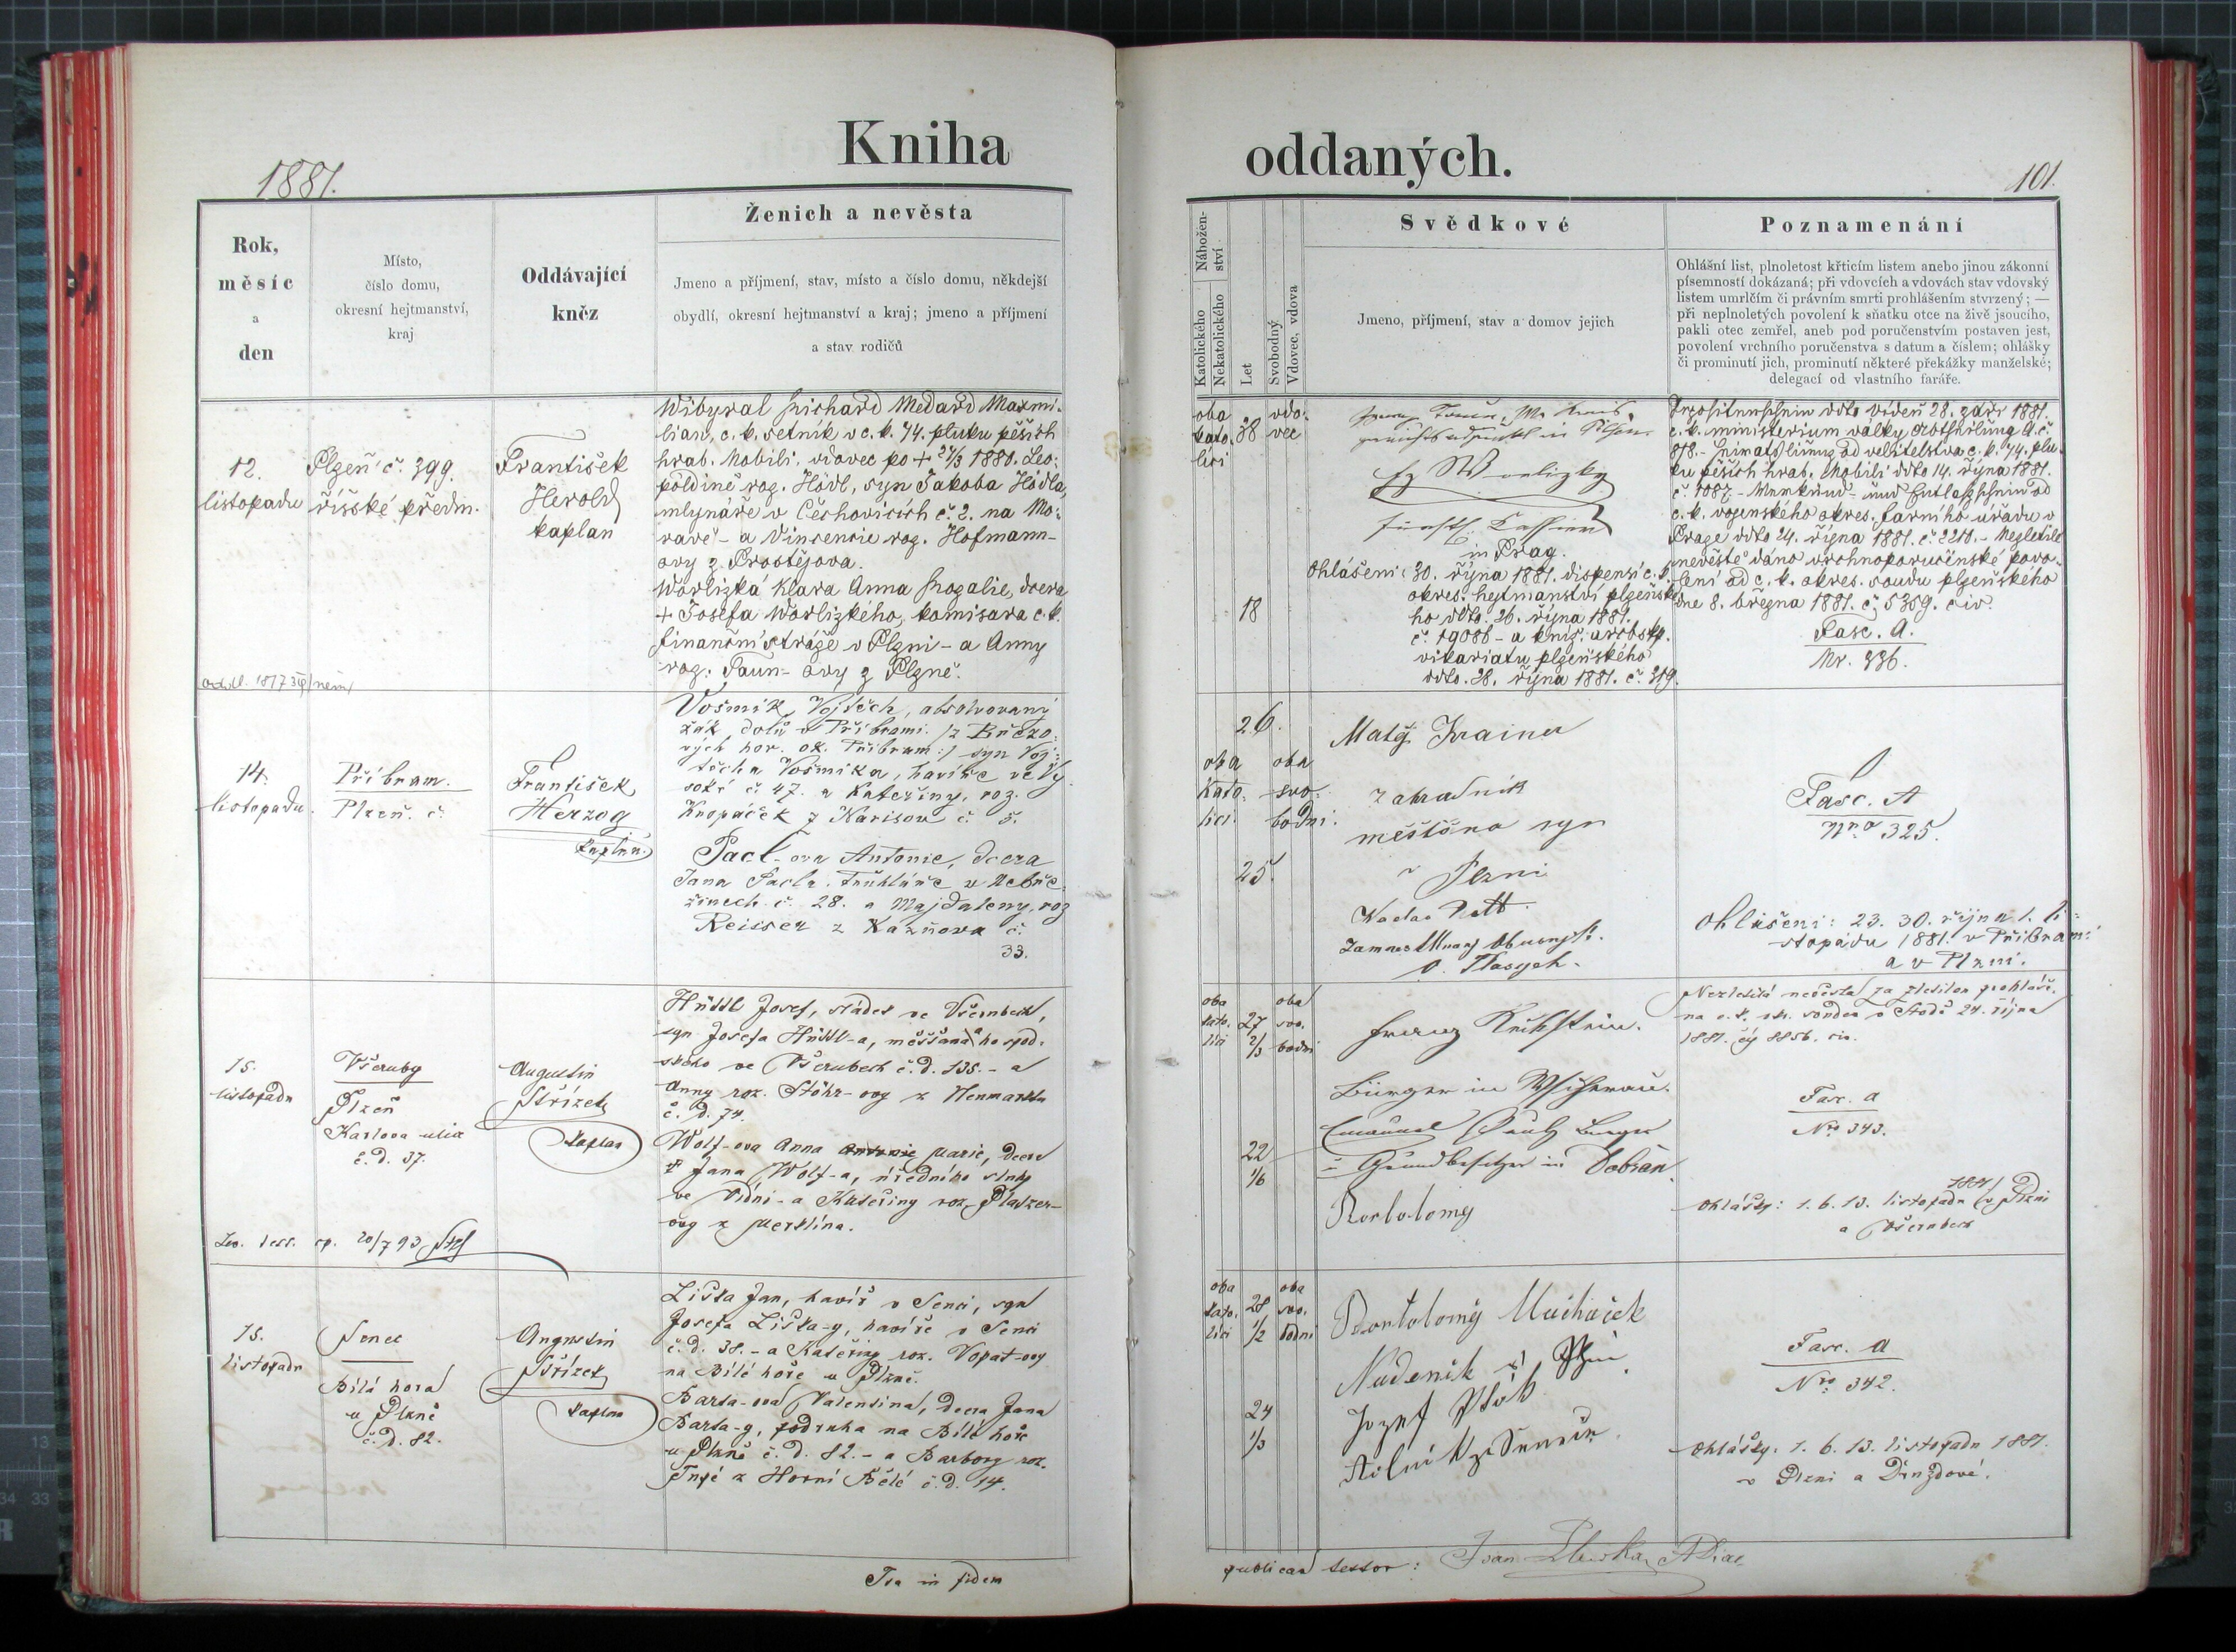 Kniha
oddaných.
1881.
101.
Rok,
měsíc
a
den
Místo,
číslo domu,
okresní hejtmanství,
kraj
Oddávající
kněz
Ženich a nevěsta
Jmeno a příjmení, stav, místo a číslo domu, někdejší
obydlí, okresní hejtmanství a kraj; jmeno a příjmení
a stav rodičů
Nábožen-
ství
Katolického
Nekatolického
Let
Svobodný
Vdovec, vdova
Svědkové
Jmeno, příjmení, stav a domov jejich
Poznamenání
Ohlášní list, plnoletost křticím listem anebo jinou zákonní
písemností dokázaná; při vdovcích a vdovách stav vdovský
listem umrlčím či právním smrti prohlášením stvrzený; —
při neplnoletých povolení k sňatku otce na živě jsoucího,
pakli otec zemřel, aneb pod poručenstvím postaven jest,
povolení vrchního poručenstva s datum a číslem; ohlášky
či prominutí jich, prominutí některé překážky manželské;
delegací od vlastního faráře.
12.
listopadu
Plzeň č. 399.
říšské předm.
František
Herold
kaplan
Wibyral Richard Medard Maxmi-
lian, c. k. setník v c. k. 74. pluku pěších
hrab. Nobili, vdovec po + 27/3 1880. Leo-
poldině roz. Hödl, syn Jakoba Hödla,
mlynáře v Čechovicích č. 2. na Mo-
ravě - a Vincencie roz. Hofmann-
ovy z Prostějova.
Worlizká Klara Anna Rozalie, dcera
+ Josefa Worlizkého, komisara c. k.
finanční stráže v Plzni - a Anny
roz. Taun-ovy z Plzně.
oba
kato-
líci
38
vdo-
vec
18
in Prag.
Ohlášeni: 30. října 1881. dispensí c. k.
okres. hejtmanství plzeňské-
ho ddto. 26. října 1881.
č. 19086 - a kníž. arcibsk.
vikariatu plzeňského
ddto. 28. října 1881. č. 319.
ddto Vídeň 28. září 1881.
c. k. ministerium války
od velitelstva c. k. 74. plu-
ku pěších hrab. Nobili ddto 14. října 1881.
č. 1087.
c. k. vojenského okres. farního úřadu v
Praze ddto 24. října 1881. č. 2210. - Nezletilé
nevěstě dáno vrchnoporučenské povo-
lení od c. k. okres. soudu plzeňského
dne 8. března 1881. č. 5359. civ.
Fasc. A.
Nr. 336.
14.
listopadu.
Příbram.
Plzeň. č.
František
Herzog
kaplan.
Vošmik, Vojtěch, absolvovaný
žák dolů v Příbrami. /z Březo-
vých hor. ok. Příbram:/ syn Voj-
těcha Vošmika, havíře ve Vy-
soké č 47. a Kateřiny, roz.
Knopáček z Narisov č. 5.
Pacl-ova Antonie, dcera
Jana Pacla, truhláře v Nebře-
zinech č. 28. a Majdaleny, roz
Reisser z Kaznova č.
33.
26.
oba
kato-
lici.
oba
svo-
bodni.
25.
Matěj Krainer
zahradník
měšťána syn
v Plzni
Fasc. A
Nro 325.
Ohlášeni: 23. 30. října 1. li-
stopadu 1881. v Příbrami
a v Plzni.
15.
listopadu
Všeruby
Plzeň
Karlova ulice
č. d. 37.
Augustin
Střízek
kaplan
Hüttl Josef, sládek ve Všerubech,
syn Josefa Hüttl-a, měšťana a hospod-
ského ve Všerubech č. d. 135. - a
Anny roz. Stöhr-ovy z Neumarktu
č. d. 74.
Wolf-ova Anna Marie, dcera
+ Jana Wolf-a, úředního sluhy
ve Vídni - a Kateřiny roz. Platzer-
ovy z Merklína.
oba
kato-
líci
27
2/3
oba
svo-
bodni
22
1/6
Bürger in Wscherau.
Grundbesitzer in Dobřan.
Bortolomy
Nezletilá nevěsta za zletilou prohláše-
na c. k. okr. soudem v Stodě 24. října
1881. čj 8856. civ.
Fasc. A
Nro 343.
Ohlášky: 1. 6. 13. listopadu 1881 v Plzni
a Všerubech
15.
listopadu
Senec
Bílá hora
u Plzně
č. d. 82.
Augustin
Střízek
kaplan
Liška Jan, havíř v Senci, syn
Josefa Liška-y, havíře v Senci
č. d. 38. - a Kateřiny roz. Vopat-ovy
na Bílé hoře u Plzně.
Barta-ova Valentina, dcera Jana
Barta-y, podruha na Bílé hoře
u Plzně č. d. 82. - a Barbory roz.
z Horní Bělé č. d. 14.
oba
kato-
líci
28
1/2
oba
svo-
bodni
24
1/3
Bortolomý Macháček
Nadeník v Plzni
Jozef
Fasc. A
Nro. 342.
Ohlášky: 1. 6. 13. listopadu 1881.
v Plzni a Družďové.
Ita in fidem
publicae testor: